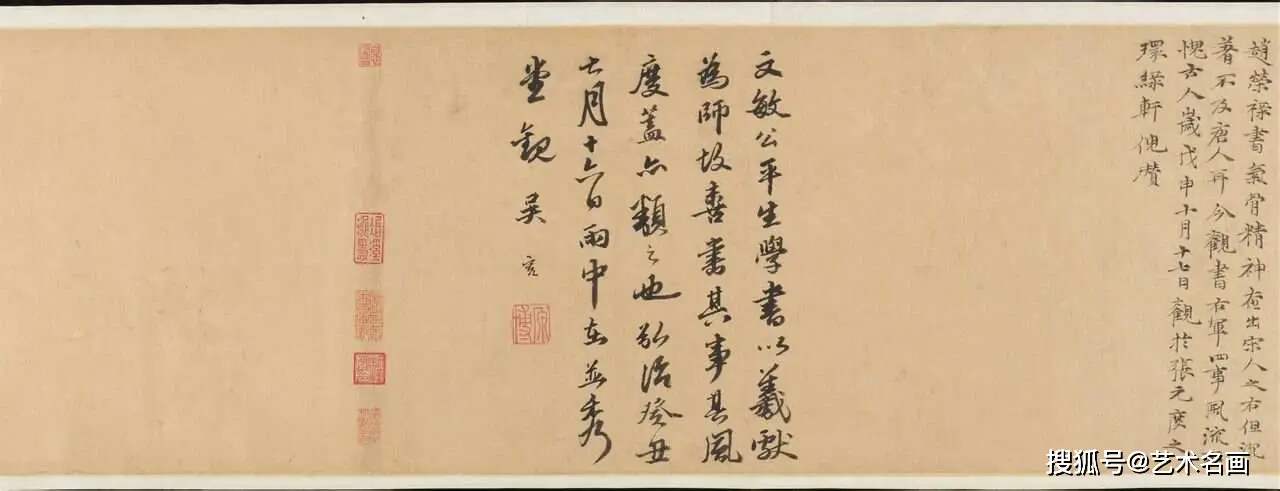 趙榮祿書氣骨精神在出宋人之右但沉
著不及唐人耳今觀書右軍四事風流
愧古人歲戊申十月十七日觀於張元度之
環綠軒倪瓚
文敏公平生學書以羲獻
為師故喜書其事其風
度蓋亦類之也弘治癸丑
七月十六日雨中在並秀
堂觀吳寬
原博
搜狐号@艺术名画